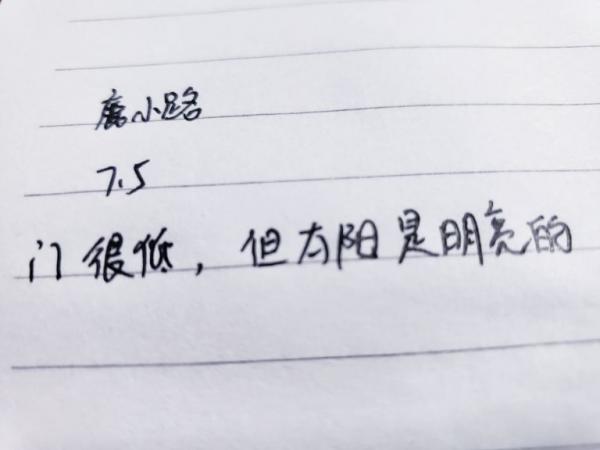 鹿小路
7.5
门很低，但太阳是明亮的